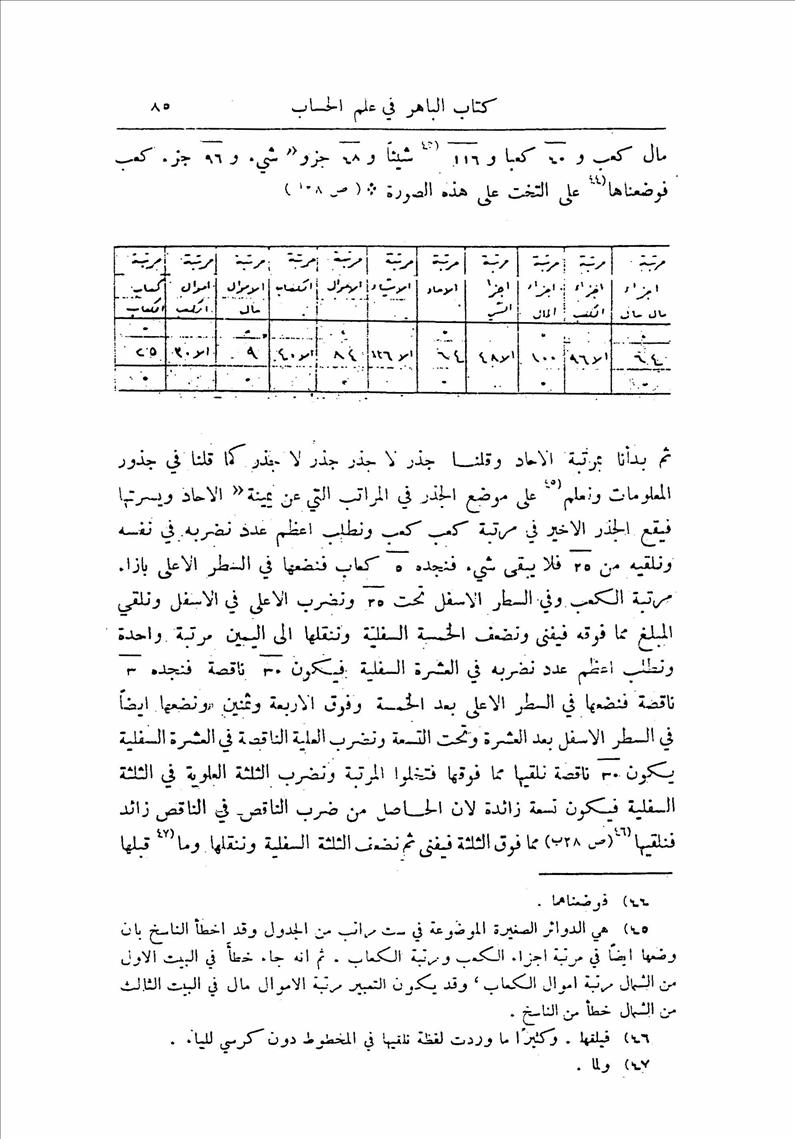 كتاب الباهر في علم الحساب ٨٥
مال كعب و ٤٠ كعبا و ١١٦ شيئاً و ٤٨ جزو» شيء و ٩٦ جزء كعب
فوضعناها(٤٤ على التخت على هذه الصورة * ( ص ١٠٨ )
مرتبة مرتبة مرتبة مرتبة مرتبة مرتبة مرتبة مرتبة مرتبة مرتبة مرتبة مرتبة
اجزاء اجزاء اجزاء اجزا الاحاد الاشياء الاموال الكعاب الاموال اموال كعاب
مال مال الكعب المال الشي مال الكعب الكعاب
٦٤ الا ٩٦ ١٠٠ الا ٤٨ ٦٤ الا ١٢٦ ٨٤ الا ٤٠ ٩ الا ٣٠ ٢٥
ثم بدأنا بمرتبة الاحاد وقلنا جذر لا جذر جذر لا جذر كما قلنا في جذور
المعلومات ونعلم(٤٥ على موضع الجذر في المراتب التي عن يمينة» الاحاد ويسرتها
فيقع الجذر الاخير في مرتبة كعب كعب ونطلب اعظم عدد نضربه في نفسه
ونلقيه من ٢٥ فلا يبقى شيء فنجده ٥ كعاب فنضعها في السطر الاعلى بازاء
مرتبة الكعب وفي السطر الاسفل تحت ٢٥ ونضرب الاعلى في الاسفل ونلقي
المبلغ مما فوقه فيفنى ونضعف الخمسة السفليّة وننقلها الى اليمين مرتبة واحدة
ونطلب اعظم عدد نضربه في العشرة السفلية فيكون ٣٠ ناقصة فنجده ٣
ناقصة فنضعها في السطر الاعلى بعد الخمسة وفوق الاربعة وثمنين «ونضعها ايضاً
في السطر الاسفل بعد العشرة وتحت التسعة ونضرب العلية الناقصة في العشرة السفلية
يكون ٣٠ ناقصة نلقيها مما فوقها فتخلوا المرتبة ونضرب الثلثة العلوية في الثلثة
السفلية فيكون تسعة زائدة لان الحاصل من ضرب الناقص في الناقص زائد
فنلقيها(٤٦ (ص ٢٨ب) مما فوق الثلثة فيفنى ثم نضعف الثلثة السفلية وننقلها وما(٤٧ قبلها
٤٤) فوضعناهما .
٤٥) هي الدوائر الصغيرة الموضوعة في ست مراتب من الجدول وقد اخطأ الناسخ بان
وضعها ايضاً في مرتبة اجزاء الكعب ورتبة الكعاب . ثم انه جاء خطأً في البيت الاول
من الشمال مرتبة اموال الكعاب ، وقد يكون التعبير مرتبة الاموال مال في البيت الثالث
من الشمال خطأ من الناسخ .
٤٦) فيلقها . وكثيرًا ما وردت لفظة نلقيها في المخطوط دون كرسي للياء .
٤٧) ولما .